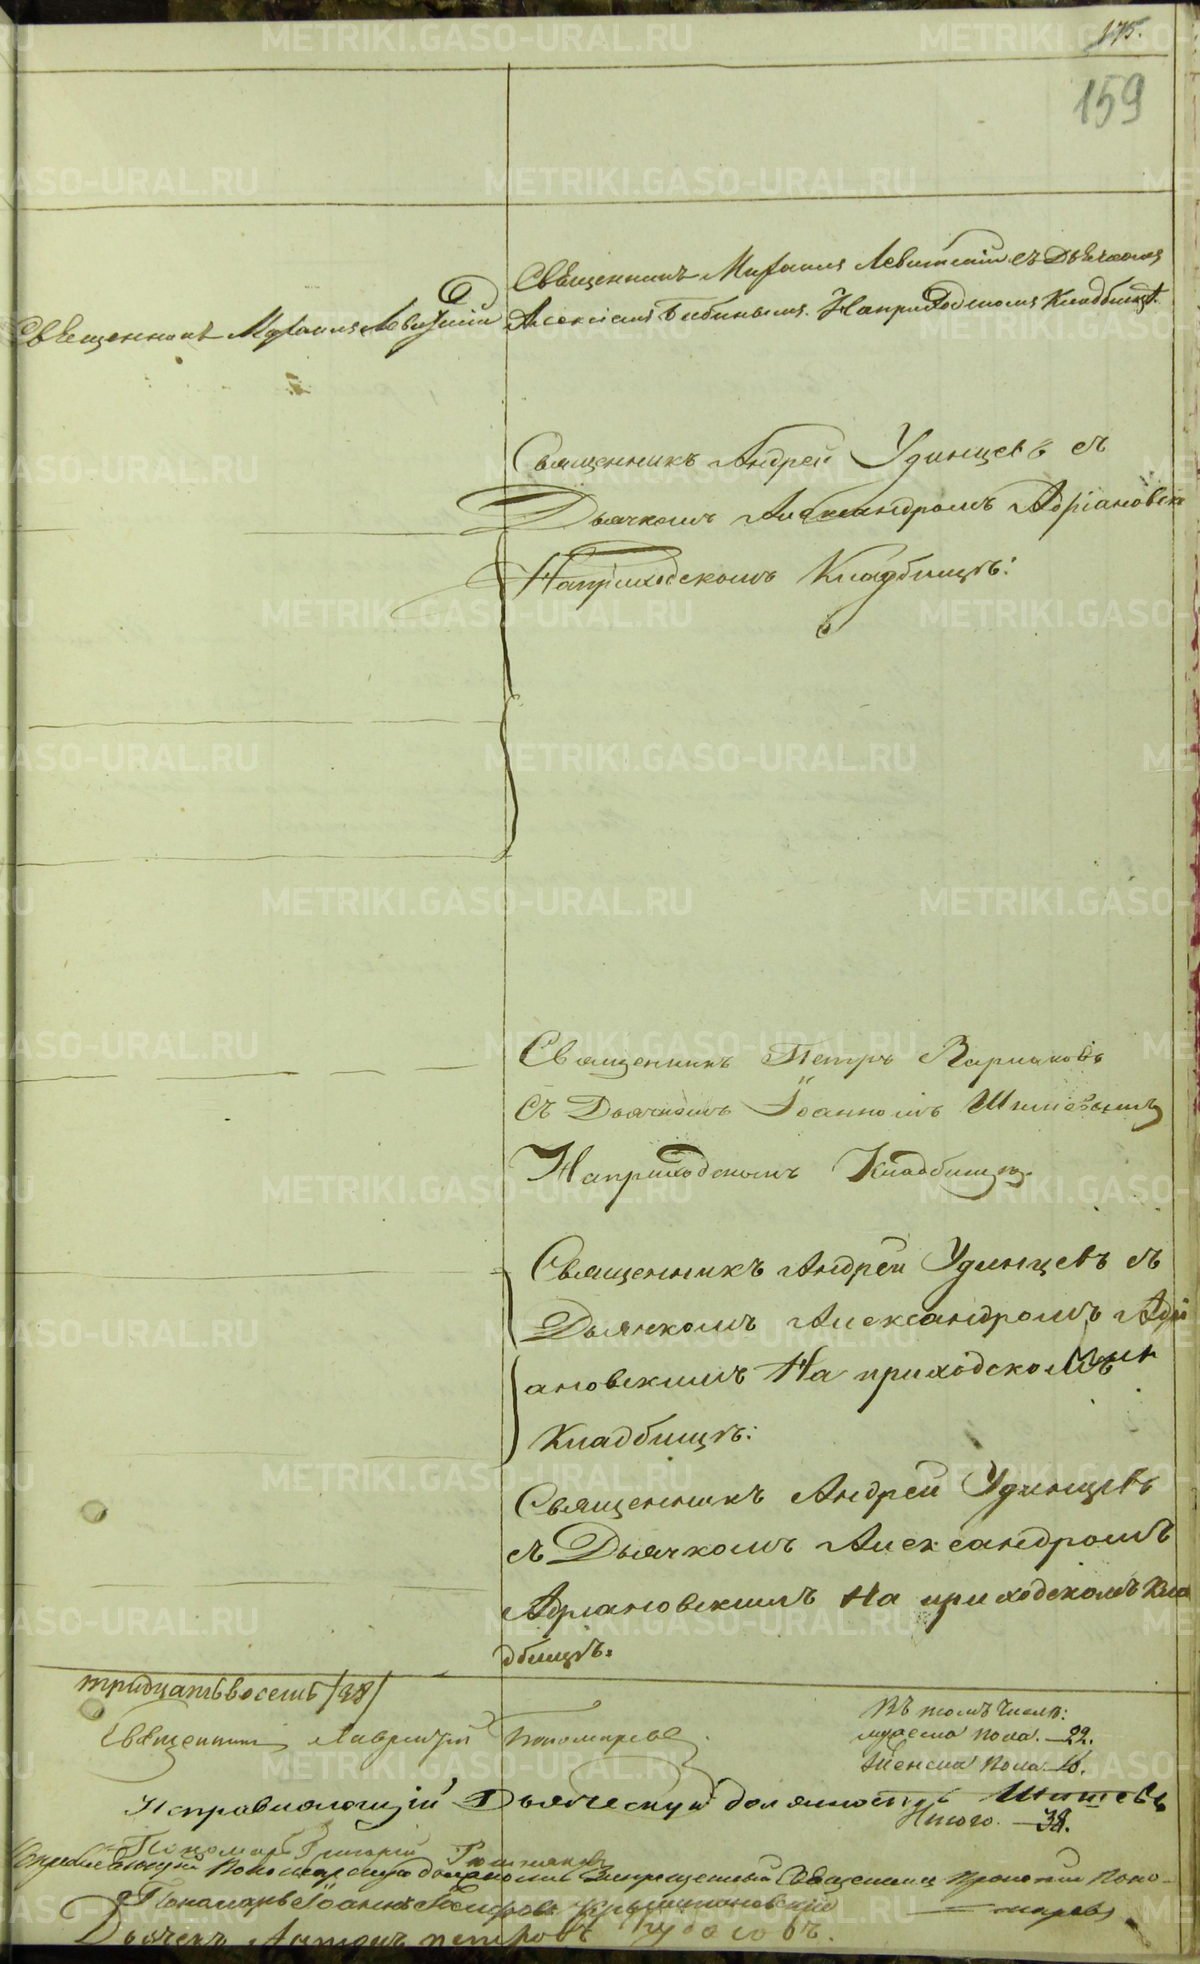 175.
159
Священникъ Михаилъ Левитскій съ Дьячкомъ
Священникъ Михаилъ Левитскій
Алексіемъ Бибинымъ. На приходскомъ Кладбищѣ.
Священникъ Андрей Удинцевъ съ
Дьячкомъ Александромъ Адріановски
На приходскомъ Кладбищѣ:
Священникъ Петръ
съ Дьячкомъ Іоанномъ Шишевымъ
На приходскомъ Кладбищѣ.
Священникъ Андрей Удинцевъ съ
Дьячкомъ Александромъ Адрі
ановскимъ На приходскомъ
Кладбищѣ:
Священникъ Андрей Удинцевъ
съ Дьячкомъ Александромъ
Адріановскимъ На приходскомъ Кла
дбищѣ.
тридцать восемь /38/
Въ томъ числѣ:
мужеска пола. 22.
женска пола. 16.
Итого. 38.
Священникъ Лаврентій Пономаревъ.
Исправляющій Дьяческую должность Шишевъ
Пономарь Григорій
Исправляющій Пономарскую должность Запрещенный Священникъ Поно-
маревъ
Пономарь Іоаннъ
Дьячекъ Антонъ Петровъ
METRIKI.GASO-URAL.RU